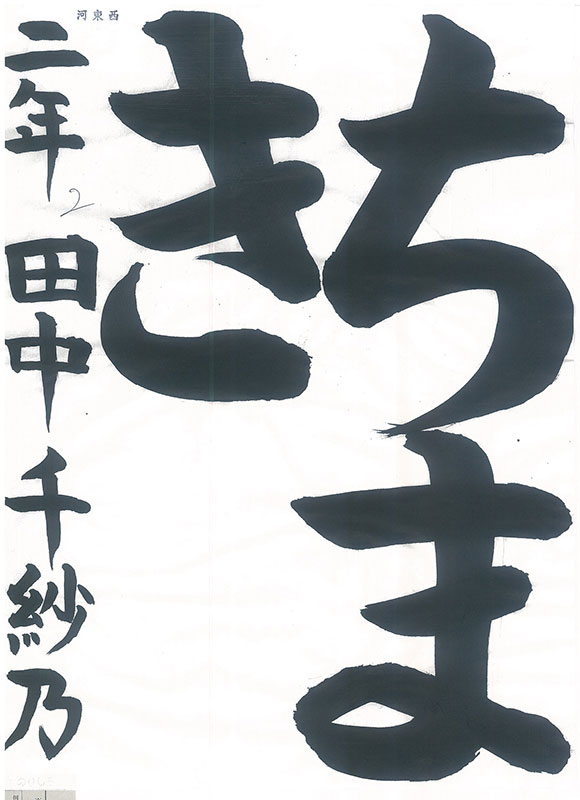 ちま
き
二年
田中千紗乃
河東西
2